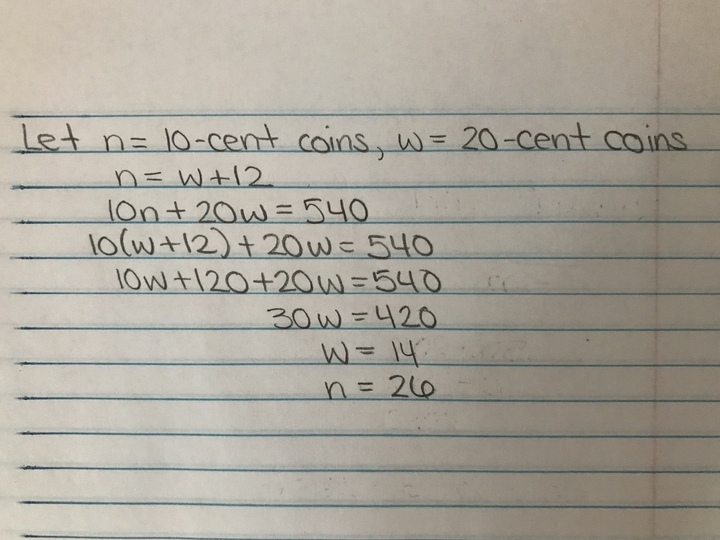 Let n= 10-cent coins, w= 20-cent coins
n= w+12
10n+20w=540
10(w+12)+20w=540
10w+120+20w=540
30w=420
w= 14
n= 26